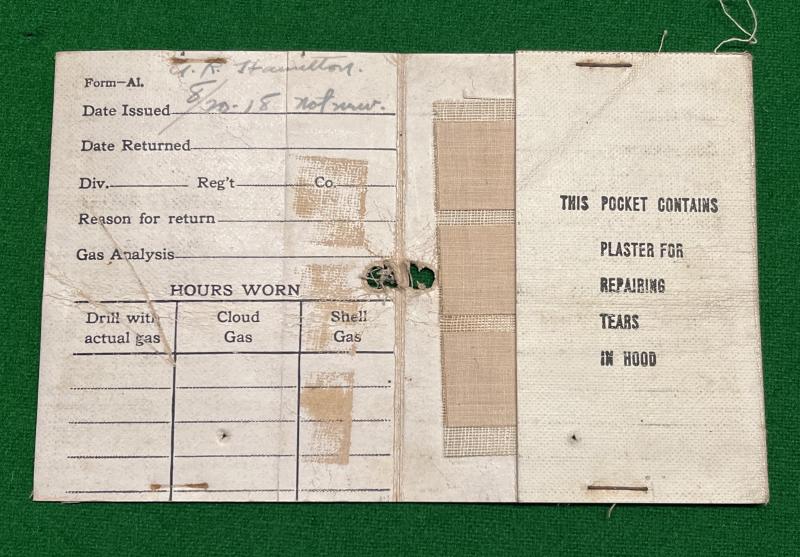 A. R. Hamilton.
Form—AI.
Date Issued 8/20-18 not new.
Date Returned
Div. Reg't Co.
Reason for return
Gas Analysis
HOURS WORN
Drill with actual gas
Cloud Gas
Shell Gas
THIS POCKET CONTAINS
PLASTER FOR
REPAIRING
TEARS
IN HOOD